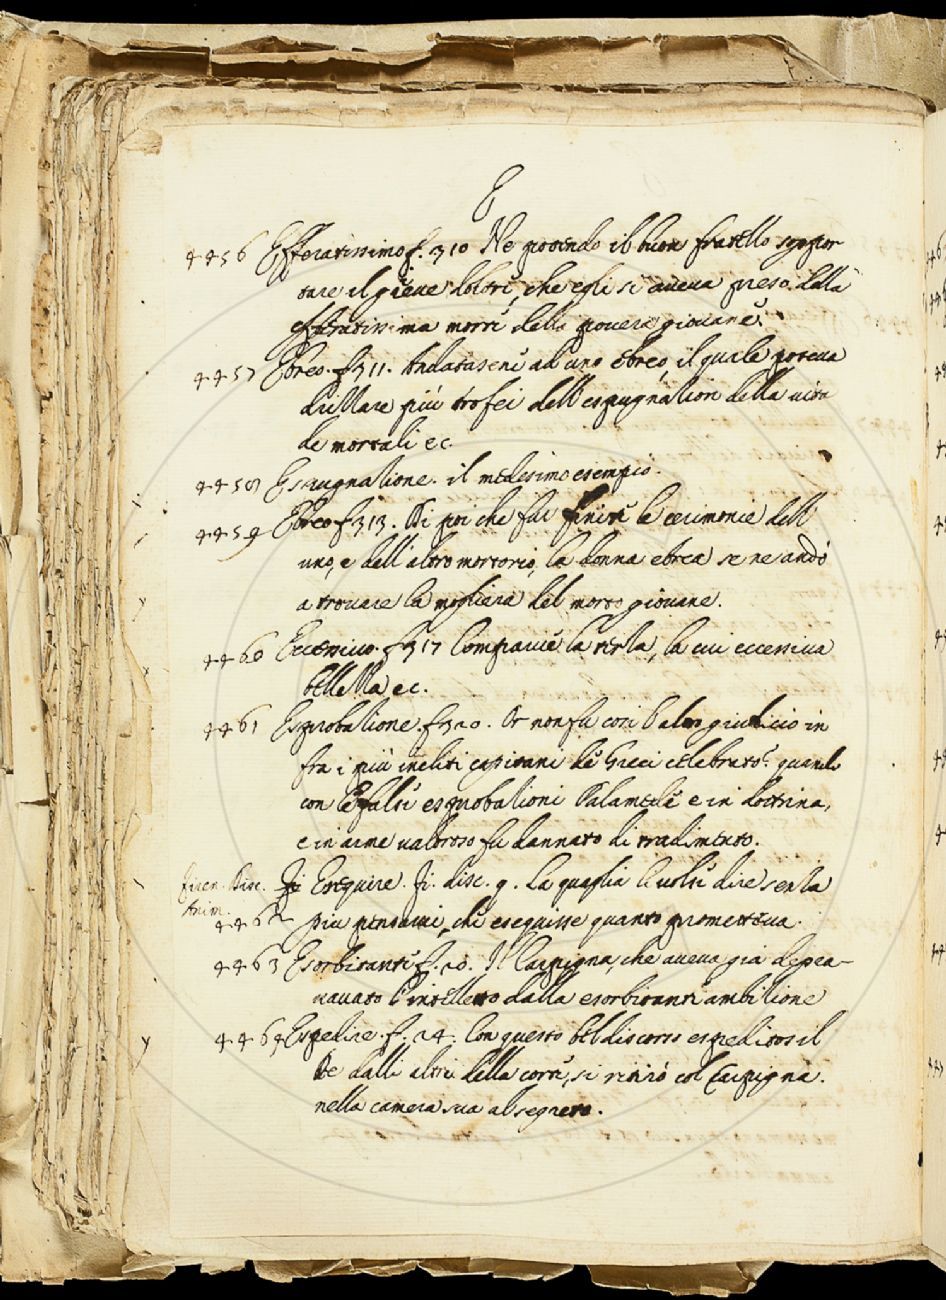 E
4456 Efferatissimo f. 310 Ne potendo il buon fratello soppor
tare il grieve dolore, che egli si aveva preso dalla
efferatissima morte della povera giovane.
4457 Ebreo. f. 311. Andatasene ad uno ebreo, il quale poteva
drizzare più trofei dell'espugnazion della vita
de mortali ec.
4458 Espugnazione. il medesimo esempio.
4459 Ebreo f. 313. Di poi che fur finite le cerimonie dell'
uno, e dell'altro mortorio, la donna ebrea se ne andò
a trovare la mogliera del morto giovane.
4460 Eccessivo. f. 317 Comparve la, la cui eccessiva
bellezza ec.
4461 Esprobazione. f. 320. Or non fu così l'alto giudicio in
fra i più incliti capitani de Greci celebrato? quando
con le false esprobazioni Palamede e in dottrina,
e in arme valoroso fu dannato di tradimento.
Firen. Disc. Eseguire. Fi. disc. 9. La quaglia li volse dire senza
Anim.
4462 più pensarvi, che eseguisse quanto prometteva.
4463 Esorbitante f. 20. Il Carpigna, che aveva già depra-
vavato l'intelletto dalla esorbitante ambizione
4464 Espedire. f. 24. Con questo bel discorso espeditosi il
Re dalli altri della corte, si ritirò col Carpigna.
nella camera sua al segreto.